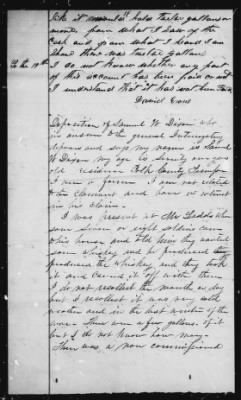 like it would hold twelve gallons or
more from what I saw of the
cask and from what I heard I am
sure there was twelve gallons
To the 19th I do not know whether any part
of this account has been paid or not
I understand that it has not been
David Evans
Deposition of Samuel W Dixon who
in answer to the general Interrogatory
deposes and says my name is Saml
W Dixon my age is Seventy one years
old residence Polk County Tennessee
I am a farmer I am not related
to the claimant and have no interest
in his claim.
I was present at Mr Ladds when
some seven or eight soldiers came
to his house and told him they wanted
some whiskey and he produced
the whiskey and they took
it and carried it off with them
I do not recollect the month or day
but I recollect it was very cold
weather and in the last winter of the
war. There were a few gallons of it
but I do not know how many.
There was a non commissioned